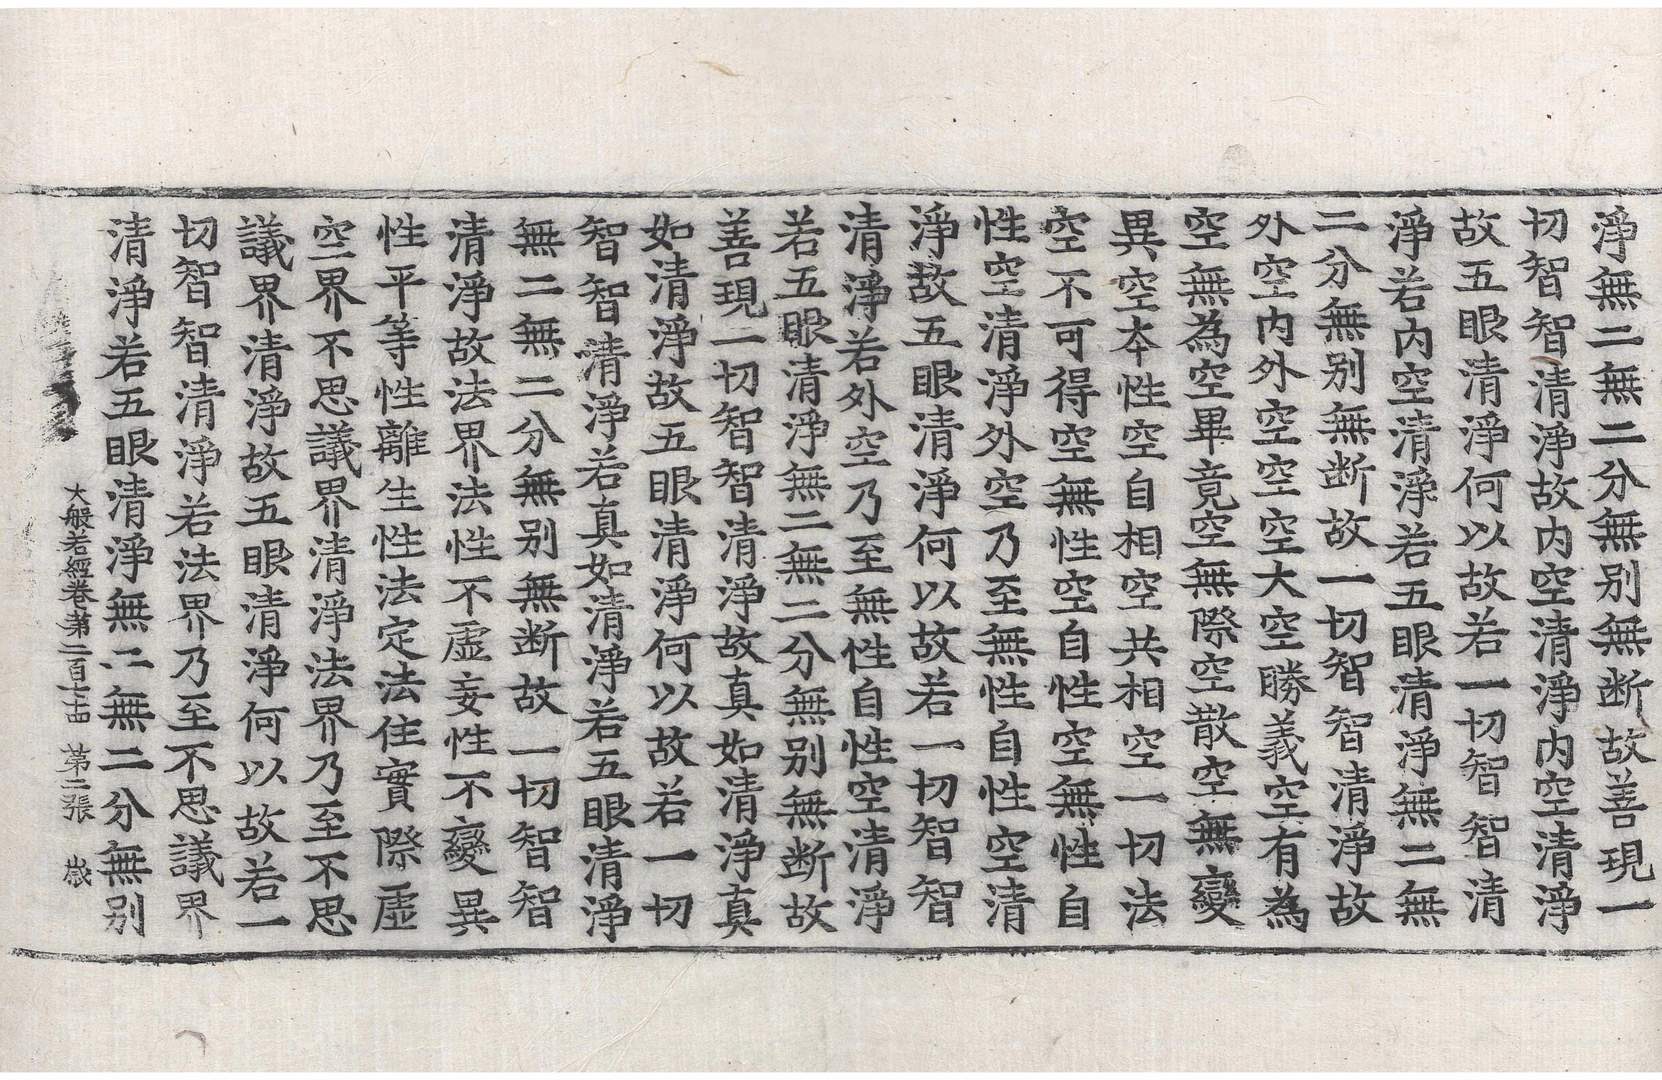 淨無二無二分無别無断故善現一
切智智清淨故内空清淨内空清淨
故五眼清淨何以故若一切智智清
淨若内空清淨若五眼清淨無二無
二分無别無断故一切智智清淨故
外空内外空空空大空勝義空有為
空無為空畢竟空無際空散空無變
異空夲性空自相空共相空一切法
空不可得空無性空自性空無性自
性空清淨外空乃至無性自性空清
淨故五眼清淨何以故若一切智智
清淨若外空乃至無性自性空清淨
若五眼清淨無二無二分無别無断故
善現一切智智清淨故真如清淨真
如清淨故五眼清淨何以故若一切
智智清淨若真如清淨若五眼清淨
無二無二分無别無断故一切智智
清淨故法界法性不虛妄性不變異
性平等性離生性法定法住實際虛
空界不思議界清淨法界乃至不思
議界清淨故五眼清淨何以故若一
切智智清淨若法界乃至不思議界
清淨若五眼清淨無二無二分無别
大般若經卷苐二百七十四 苐二張 歲